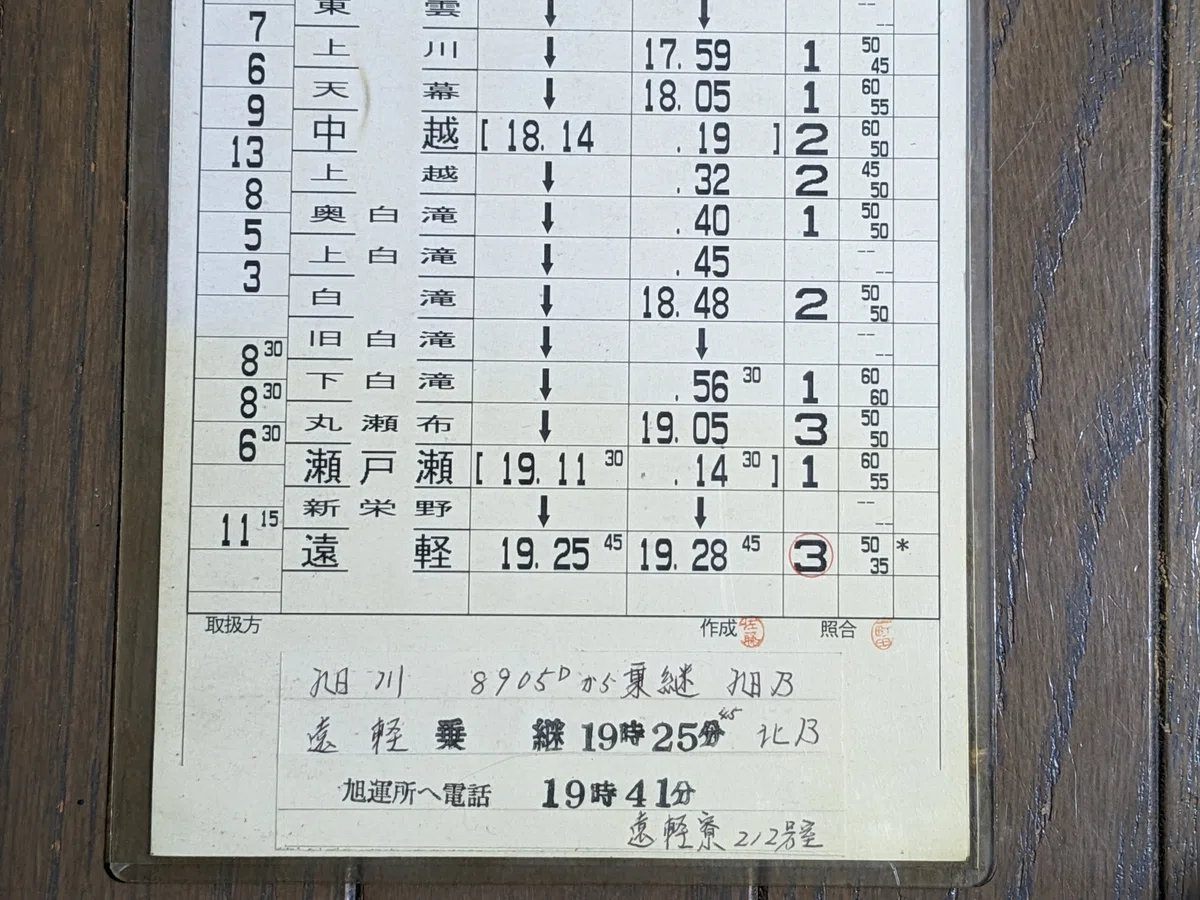 東 雲 ↓ ↓ -- --
7
上 川 ↓ 17.59 1 50 45
6
天 幕 ↓ 18.05 1 60 55
9
中 越 [ 18.14 .19 ] 2 60 50
13
上 越 ↓ .32 2 45 50
8
奥 白 滝 ↓ .40 1 50 50
5
上 白 滝 ↓ .45 -- --
3
白 滝 ↓ 18.48 2 50 50
旧 白 滝 ↓ ↓ -- --
8 30
下 白 滝 ↓ .56 30 1 60 60
8 30
丸 瀬 布 ↓ 19.05 3 50 50
6 30
瀬 戸 瀬 [ 19.11 30 .14 30 ] 1 60 55
新 栄 野 ↓ ↓ -- --
11 15
遠 軽 19.25 45 19.28 45 3 50 35 *
取扱方 作成 佐藤 照合 町田
旭 川 8905D から乗継 旭乃
遠 軽 乗 継 19時25分45 北乃
旭運所へ電話 19時41分
遠軽寮212号室